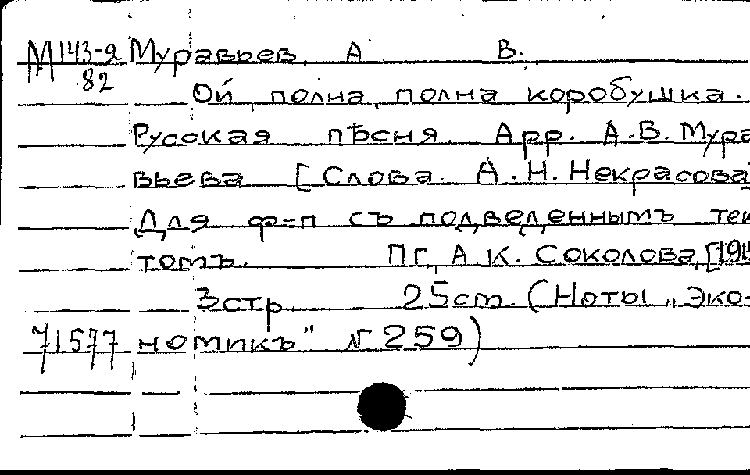 М143-9 Муравьев, А В.
82 Ой, полна, полна коробушка.
Русская пѣсня. Арр. А.В. Мура
вьева [Слова. А.Н. Некрасова]
Для ф=п съ подведеннымъ тек
томъ. ПГ, А.К. Соколова,
3стр. 25cm. (Ноты „Эко-
71577 номикъ" № 259)